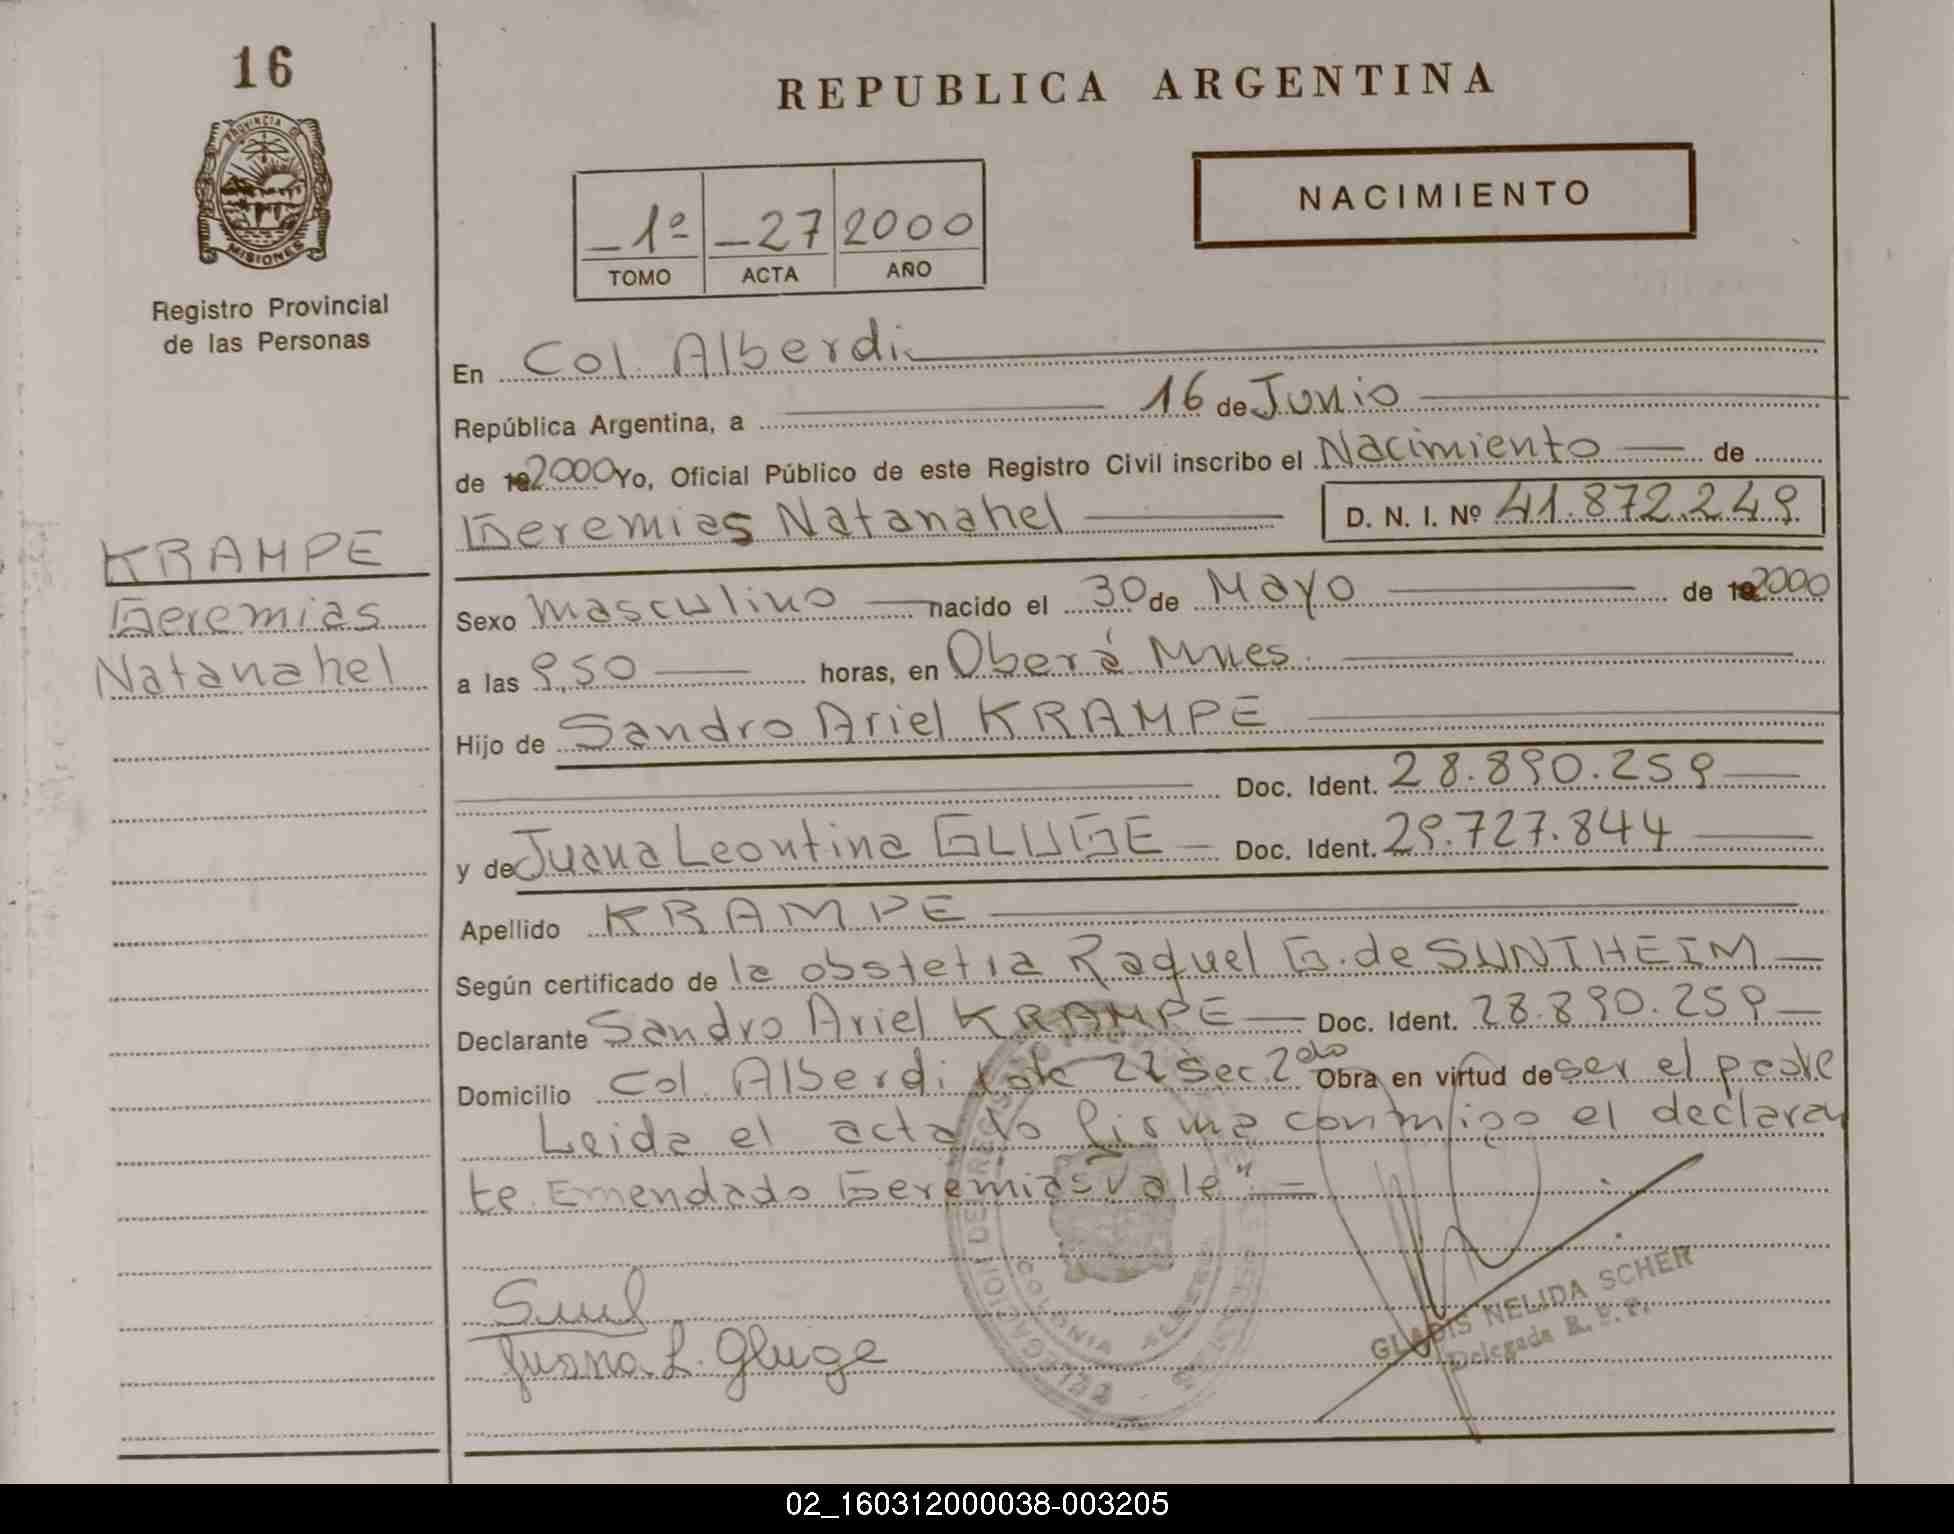 16
PROVINCIA DE
MISIONES
Registro Provincial
de las Personas
KRAMPE
Geremias
Natanahel
REPUBLICA ARGENTINA
1º 27 2000
TOMO ACTA AÑO
NACIMIENTO
En Col. Alberdi
República Argentina, a 16 de Junio
de 2000 Yo, Oficial Público de este Registro Civil inscribo el Nacimiento de
Geremias Natanahel D. N. I. Nº 41.872.249
Sexo Masculino nacido el 30 de Mayo de 2000
a las 9,50 horas, en Oberá Mnes.
Hijo de Sandro Ariel KRAMPE
Doc. Ident. 28.890.259
y de Juana Leontina GLUGE Doc. Ident. 29.727.844
Apellido KRAMPE
Según certificado de la obstetia Raquel G. de SUNTHEIM
Declarante Sandro Ariel KRAMPE Doc. Ident. 28.890.259
Domicilio Col. Alberdi Lote 22 Sec. 2do Obra en virtud de ser el padre
Leida el acta lo firma conmigo el declaran
te. Emendado Geremias Vale"
Juana L. Gluge
COLONIA ALBERDI
GLADIS NELIDA SCHER
Delegada R. P. P.
02_160312000038-003205